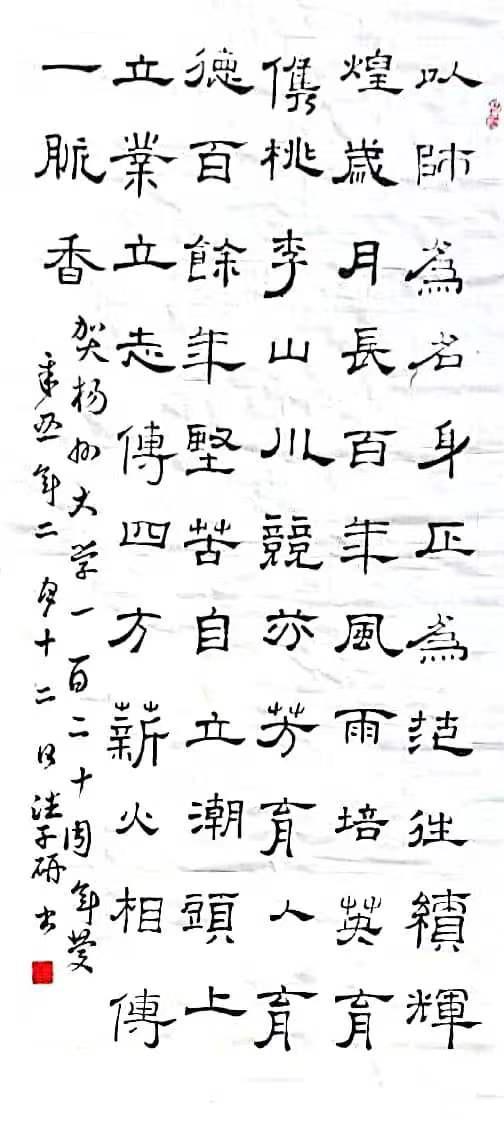 以師為名身正為范往績輝
煌歲月長百年風雨培英育
儁桃李山川競亦芳育人育
德百餘年堅苦自立潮頭上
立業立志傳四方薪火相傳
一脈香
贺杨州大学一百二十周年庆
辛丑年二月十二日 子研书